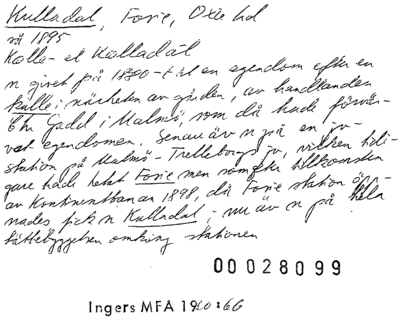 Kulladal, Fosie, Oxie hd
rå 1895
Kolle- et Kalladal
n givet på 1800-t åt en egendom efter en
källe i närheten av gården, av handlanden
Chr Gadd i Malmö, som då hade förvär-
vat egendomen. Senare äv n på en jv-
station på Malmö-Trelleborgs jv, vilken tidi-
gare hade hetat Fosie men som efter tillkomsten
av Kontinentbanan 1898, då Fosie station öpp-
nades fick n Kulladal; nu äv n på hela
tättbebyggelsen omkring stationen
00028099
Ingers MFA 1940:66